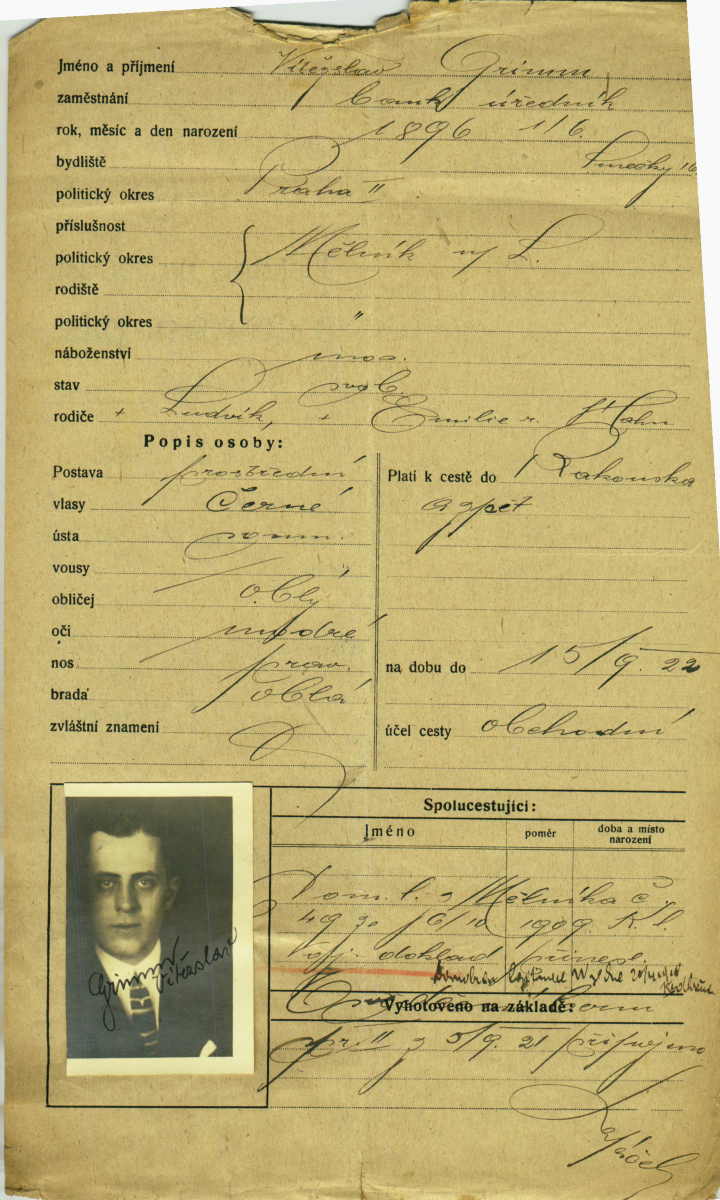 Jméno a příjmení Vítězslav Grimm
zaměstnání bank úředník
rok, měsíc a den narození 1896 1/6.
bydliště Smečky 16
politický okres Praha II
příslušnost
politický okres Mělník n/L.
rodiště
politický okres "
náboženství mos.
stav svob.
rodiče + Ludvík, + Emilie r.
Popis osoby:
Postava prostřední
Platí k cestě do Rakouska
vlasy Černé
a zpět
ústa norm.
vousy
obličej oblý
oči modré
nos prav.
na dobu do 15/9. 22
brada oblá
zvláštní znamení
účel cesty obchodní
Spolucestující:
Jméno poměr doba a místo narození
Dom. l. z Mělníka č.
49 ze 16/10 1909.
Voj. doklad přinesl.
Vyhotoveno na základě:
pr. II z 5/9. 21
Grimm Vítězslav